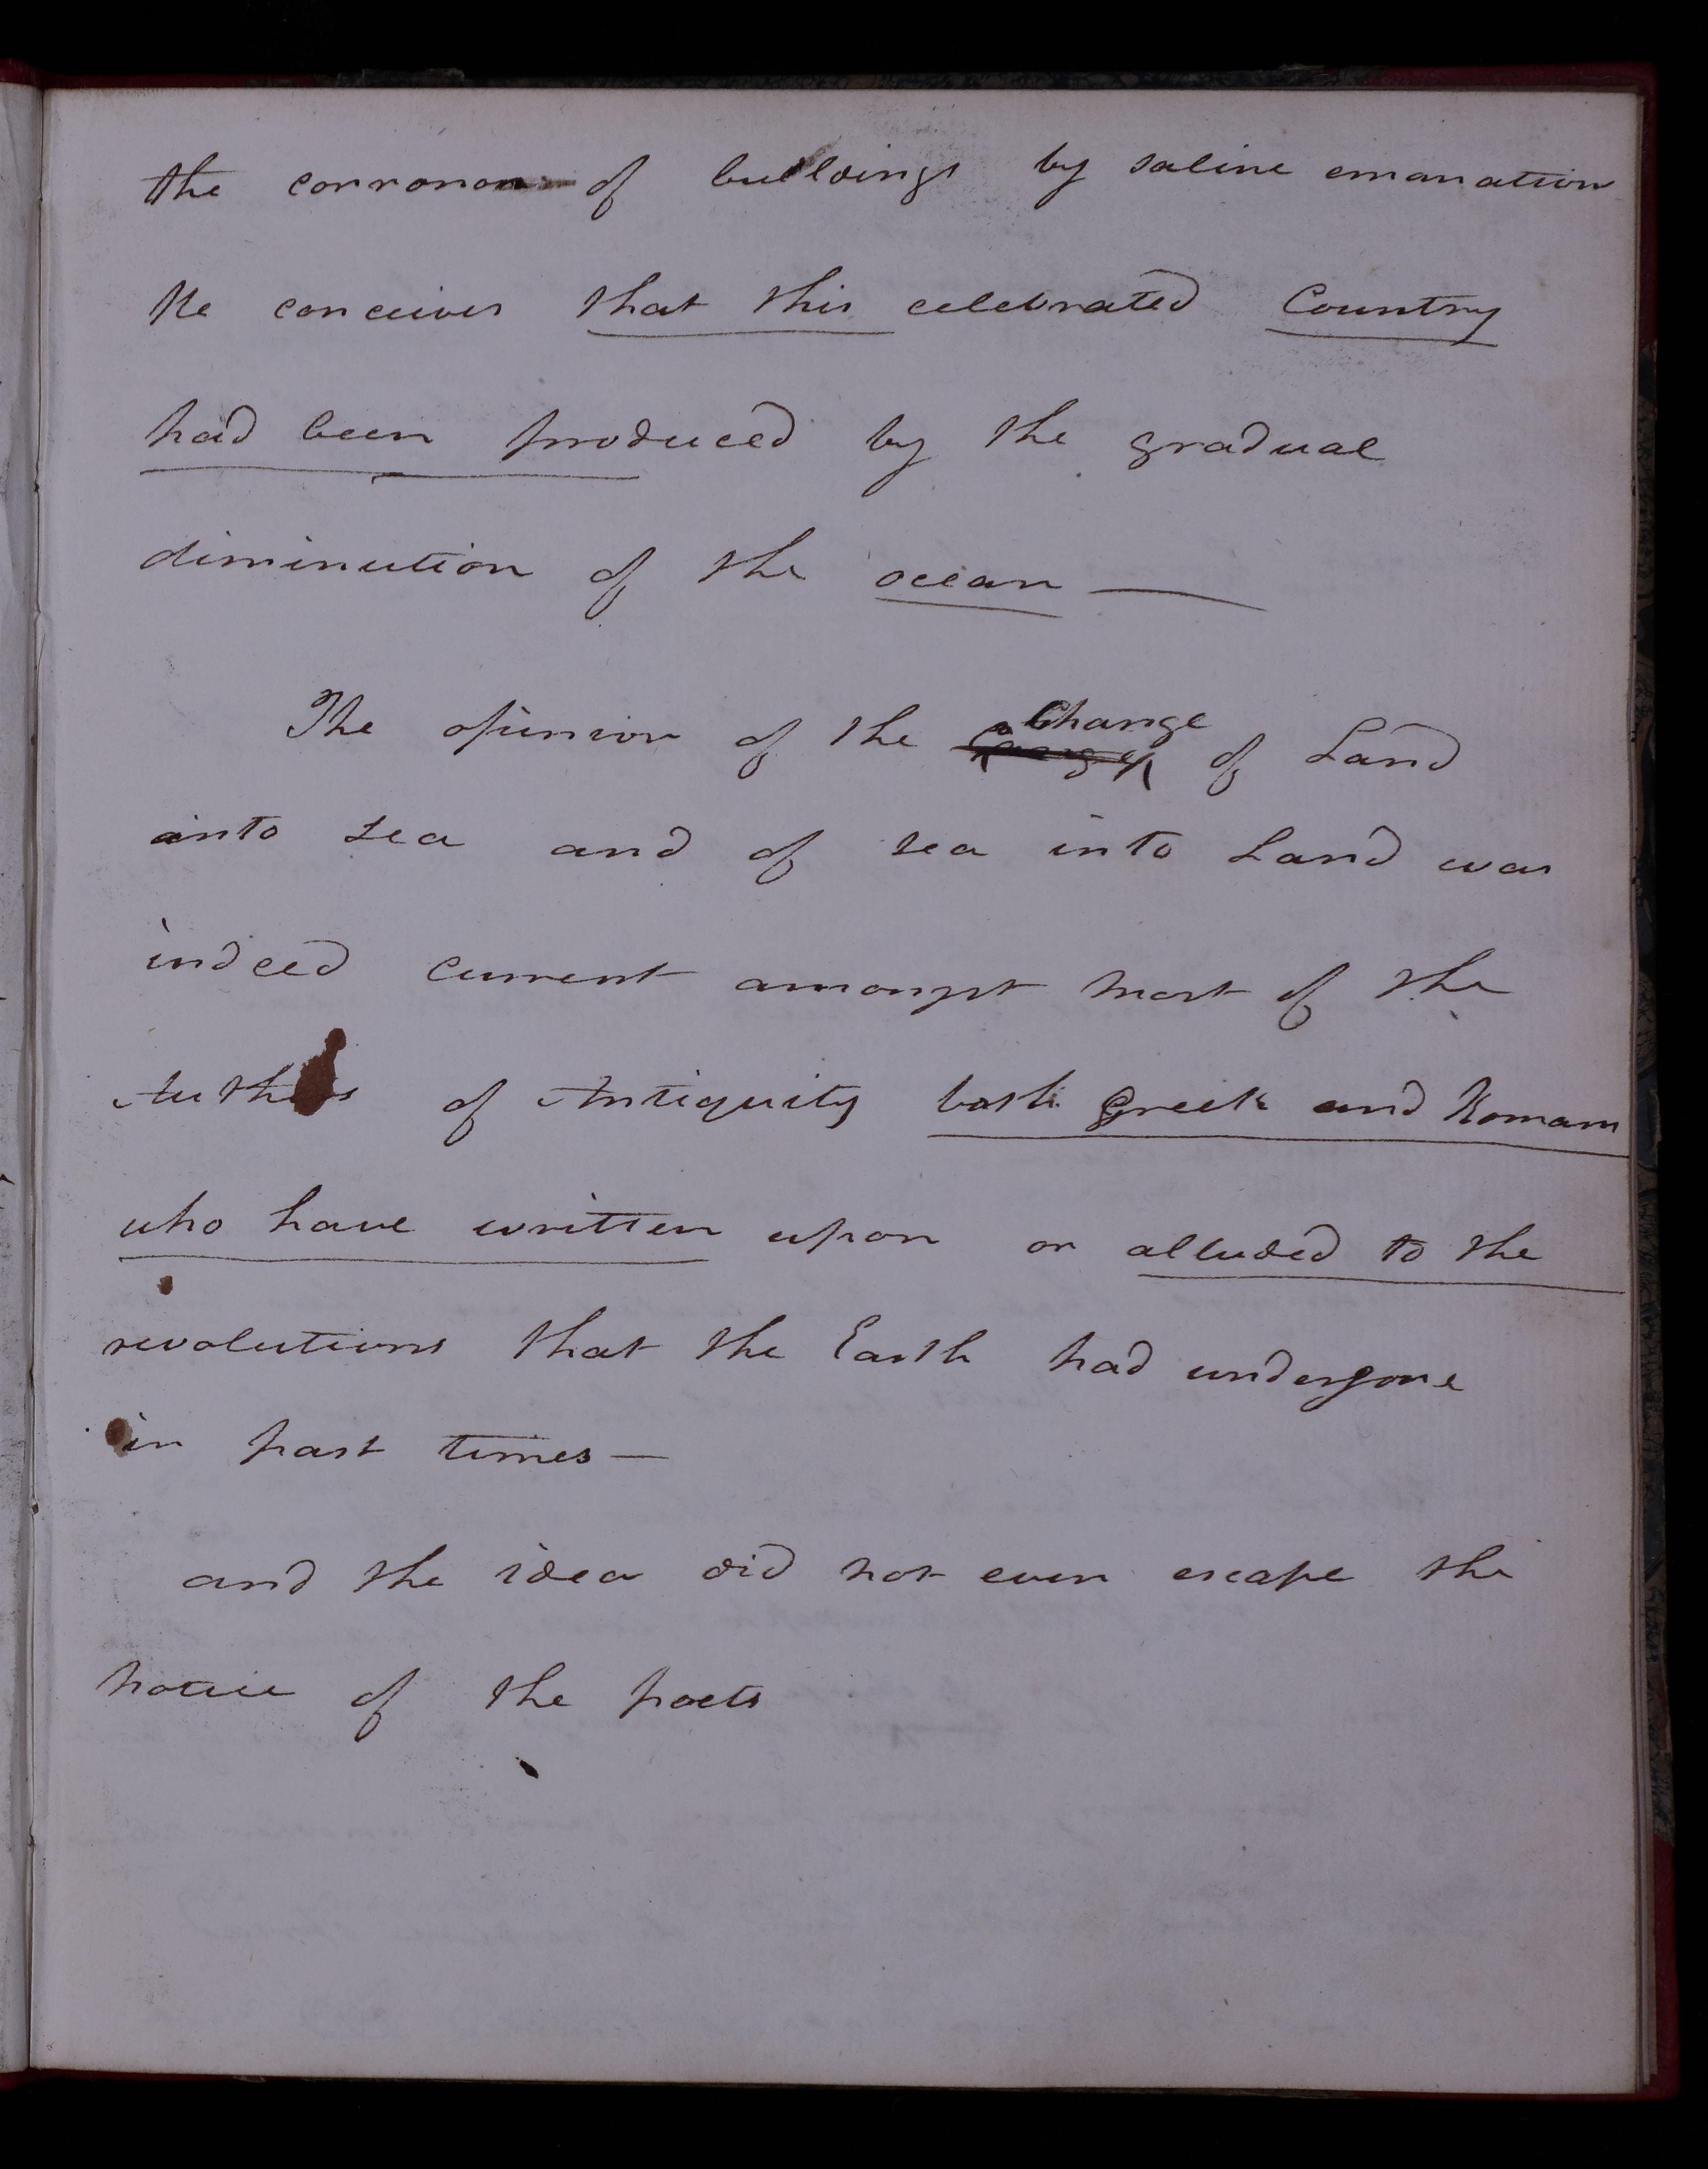 the corrosion of buildings by saline emanation
He conceives that this celebrated Country
had been produced by the gradual
diminution of the ocean —
The opinion of the Change of Land
into sea and of sea into Land was
indeed current amongst most of the
Authors of Antiquity both Greek and Roman
who have written upon or alluded to the
revolutions that the Earth had undergone
in past times —
and the idea did not even escape the
notice of the poets